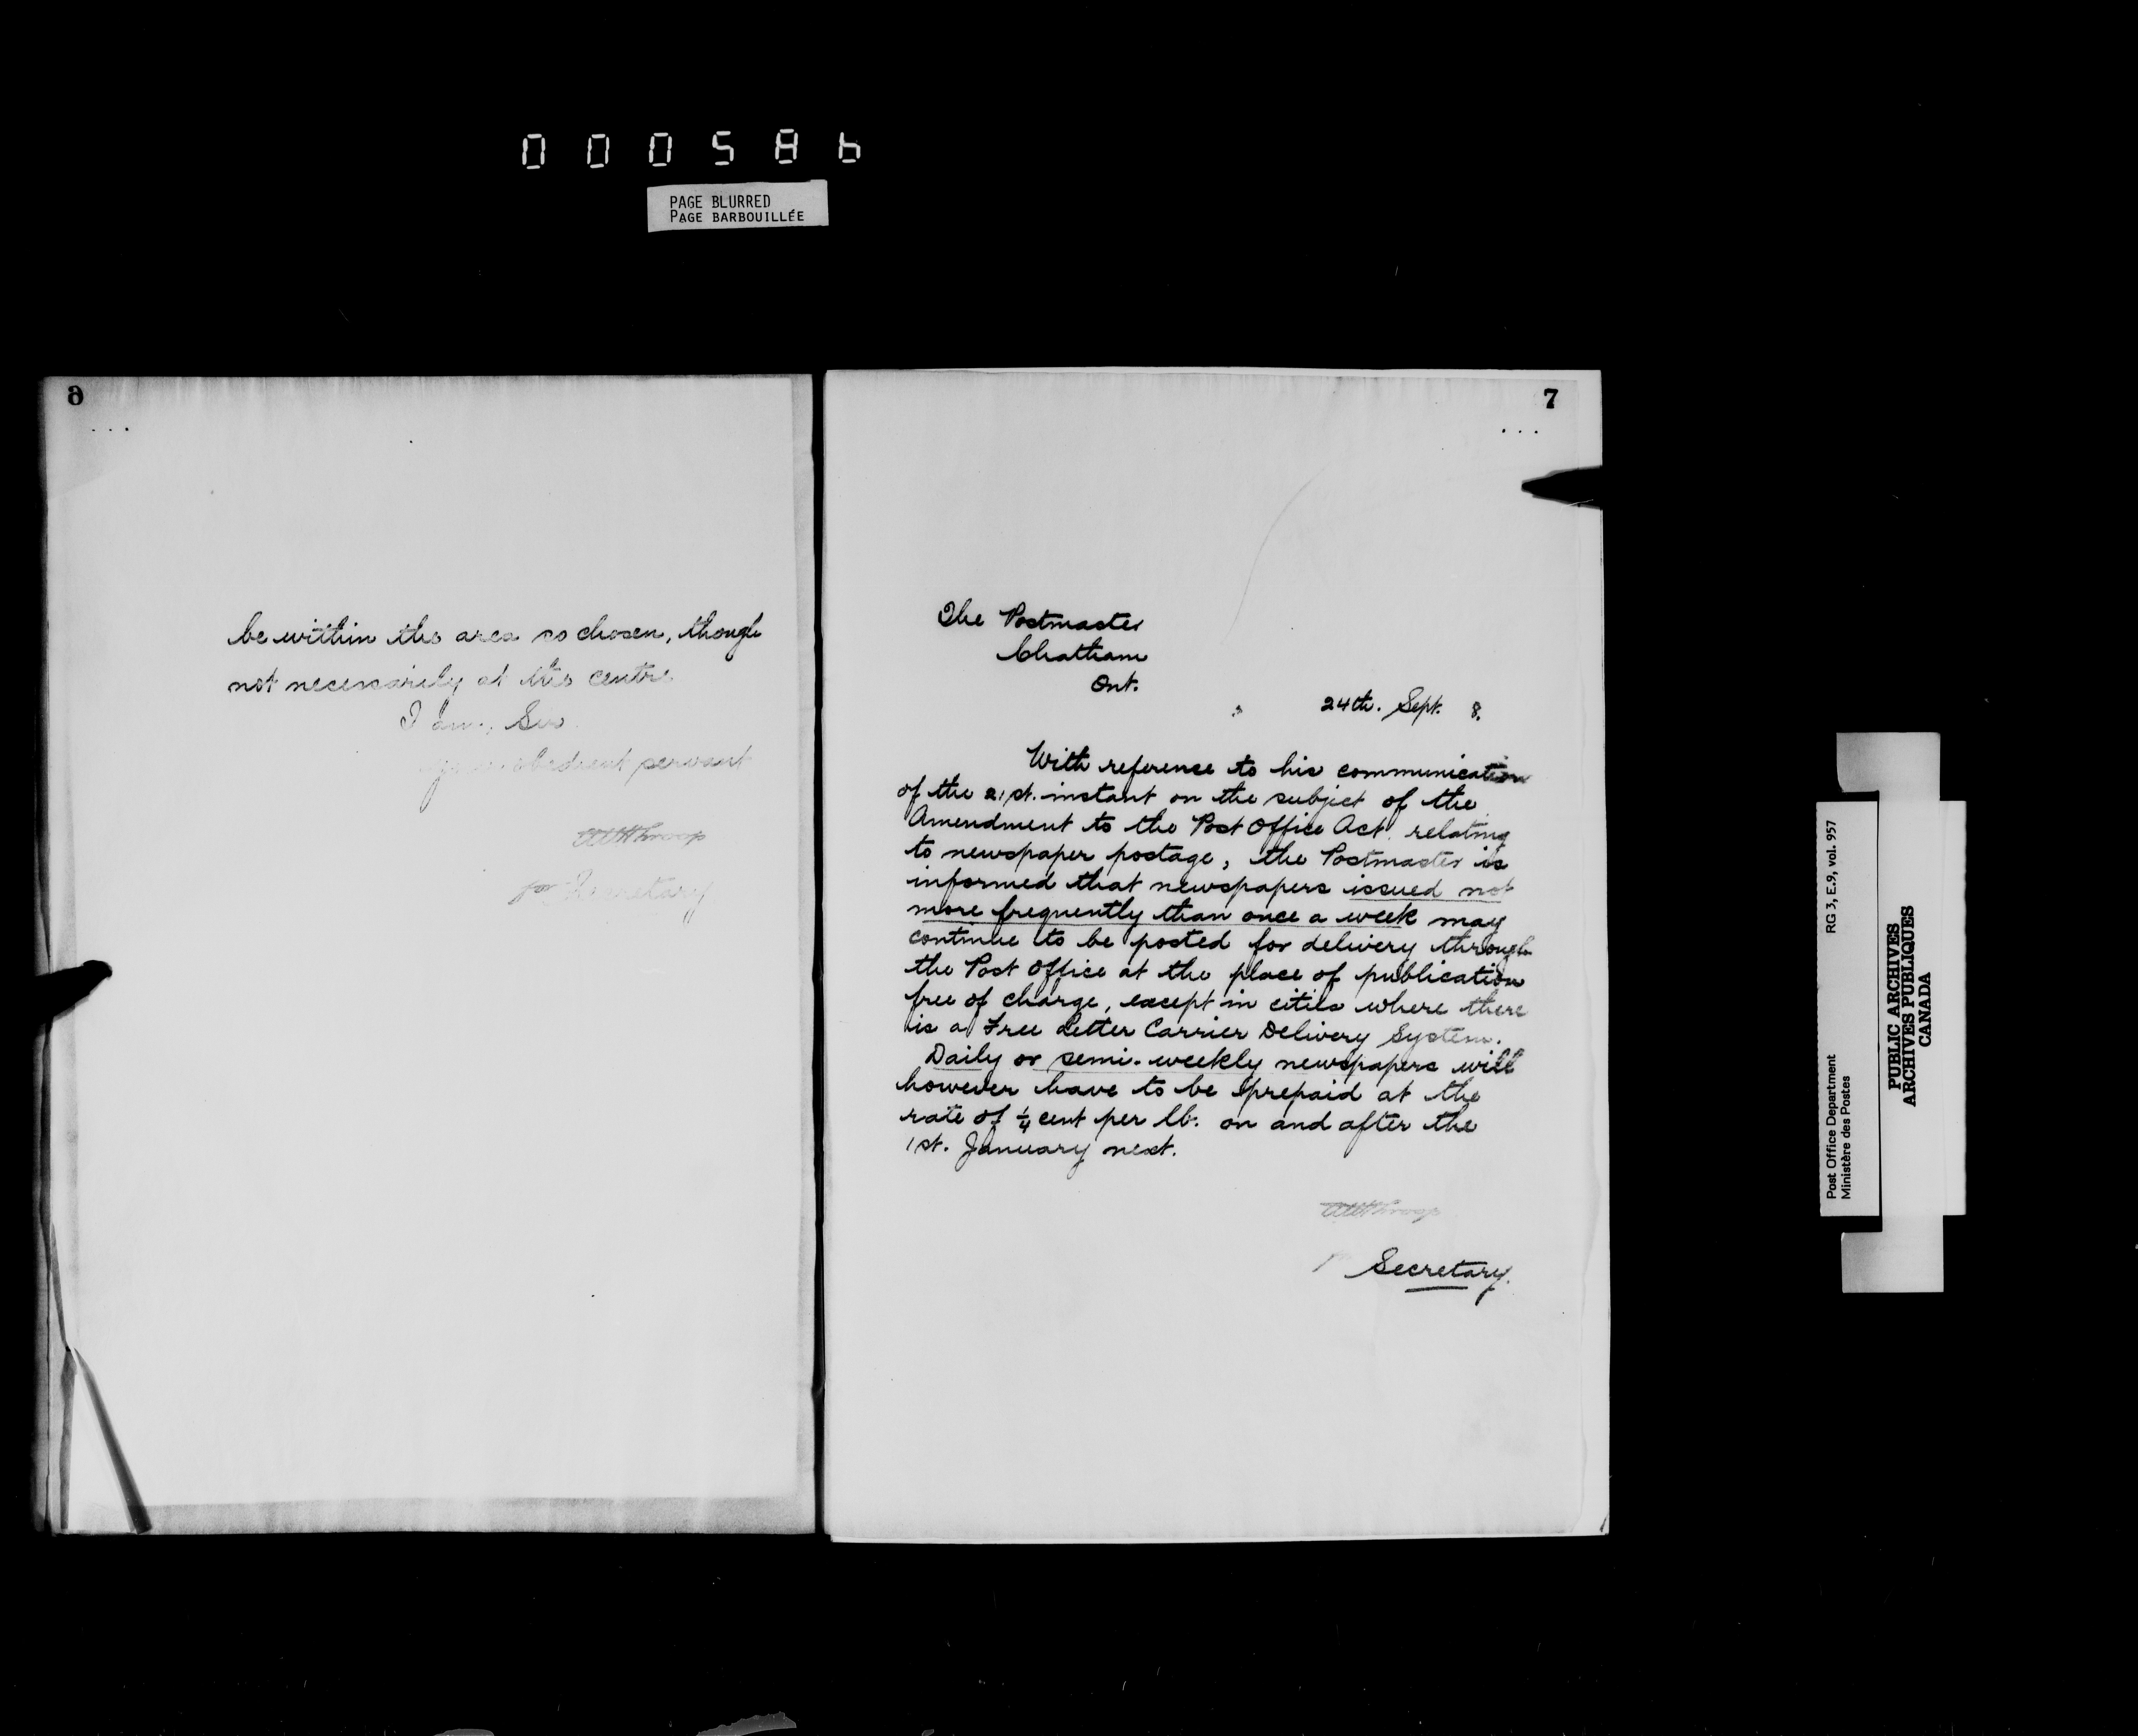 000586
PAGE BLURRED
PAGE BARBOUILLÉE
6
be within the area so chosen, though
not necessarily at the centre
I am, Sir
obedient servant
for Secretary
7
The Postmaster
Chatham
Ont.
24th. Sept. 8.
With reference to his communication
of the 21st. instant on the subject of the
Amendment to the Post Office Act relating
to newspaper postage, the Postmaster is
informed that newspapers issued not
more frequently than once a week may
continue to be posted for delivery through
the Post Office at the place of publication
free of charge, except in cities where there
is a Free Letter Carrier Delivery System.
Daily or semi-weekly newspapers will
however have to be prepaid at the
rate of ¼ cent per lb. on and after the
1st. January next.
Secretary.
Post Office Department RG 3, E.9, vol. 957
Ministère des Postes
PUBLIC ARCHIVES
ARCHIVES PUBLIQUES
CANADA